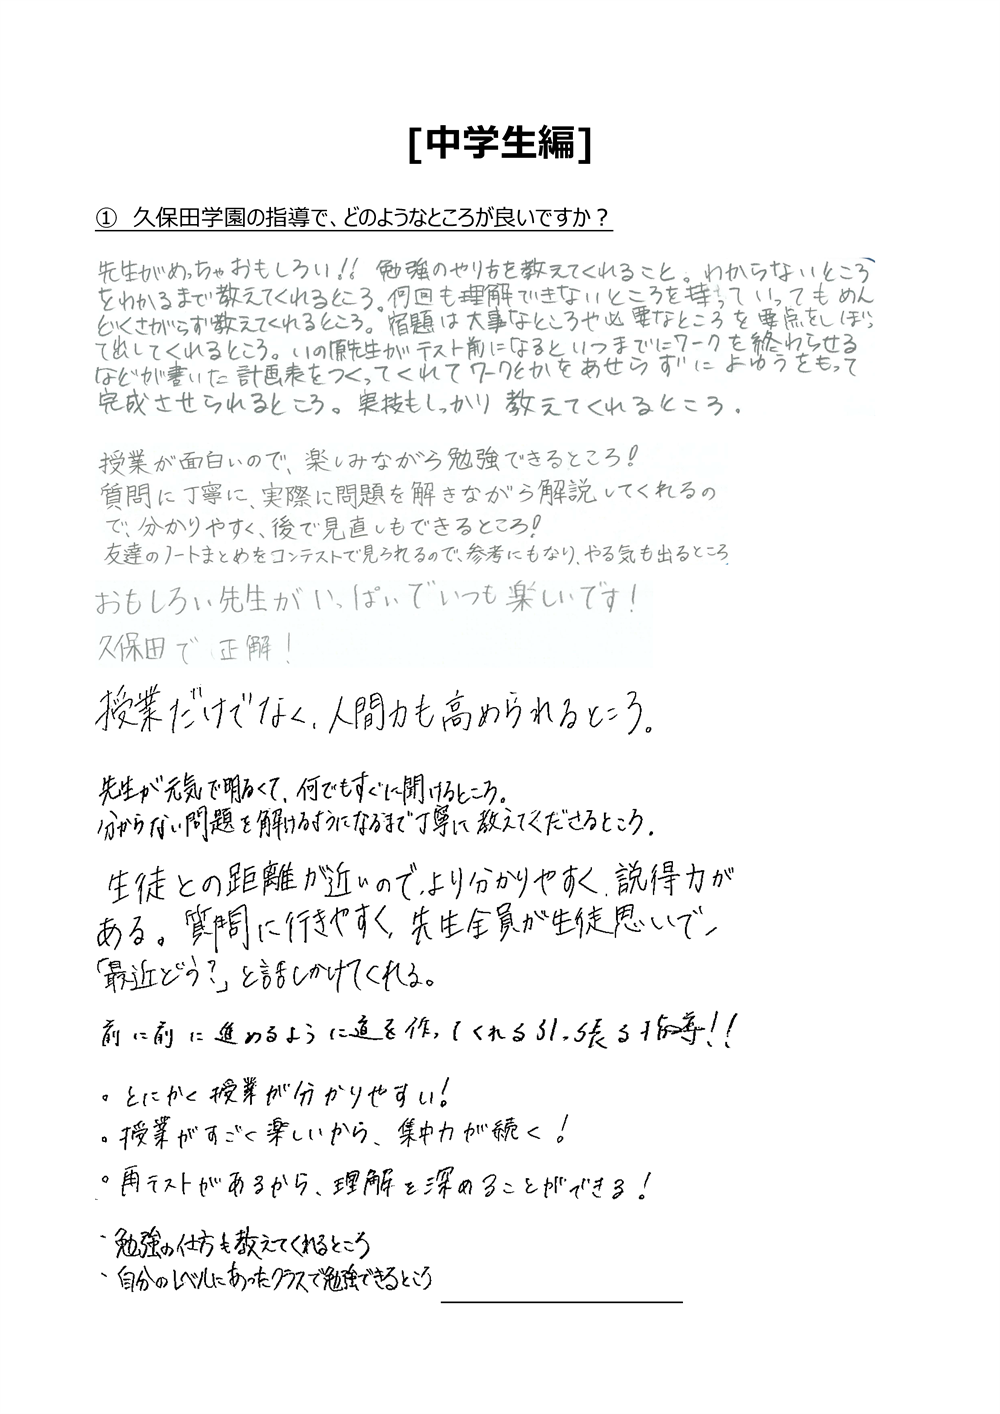 [中学生編]
① 久保田学園の指導で、どのようなところが良いですか？
先生がめっちゃおもしろい!! 勉強のやり方を教えてくれること。わからないところ
をわかるまで教えてくれるところ。何回も理解できないところを持っていってもめん
どくさがらず教えてくれるところ。宿題は大事なところや必要なところを要点をしぼっ
て出してくれるところ。いの原先生がテスト前になるといつまでにワークを終わらせる
などが書いた計画表をつくってくれてワークとかをあせらずによゆうをもって
完成させられるところ。実技もしっかり教えてくれるところ.
授業が面白いので、楽しみながら勉強できるところ!
質問に丁寧に、実際に問題を解きながら解説してくれるの
で、分かりやすく、後で見直しもできるところ!
友達のノートまとめをコンテストで見られるので、参考にもなり、やる気も出るところ.
おもしろい先生がいっぱいでいつも楽しいです!
久保田で正解!
授業だけでなく、人間力も高められるところ。
先生が元気で明るくて、何でもすぐに聞けるところ。
分からない問題を解けるようになるまで丁寧に教えてくださるところ.
生徒との距離が近いので、より分かりやすく、説得力が
ある。質問に行きやすく、先生全員が生徒思いで、
「最近どう?」と話しかけてくれる。
前に前に進めるように道を作ってくれる引っ張る指導!!
。とにかく授業が分かりやすい!
。授業がすごく楽しいから、集中力が続く!
。再テストがあるから、理解を深めることができる!
・勉強の仕方も教えてくれるところ
・自分のレベルにあったクラスで勉強できるところ